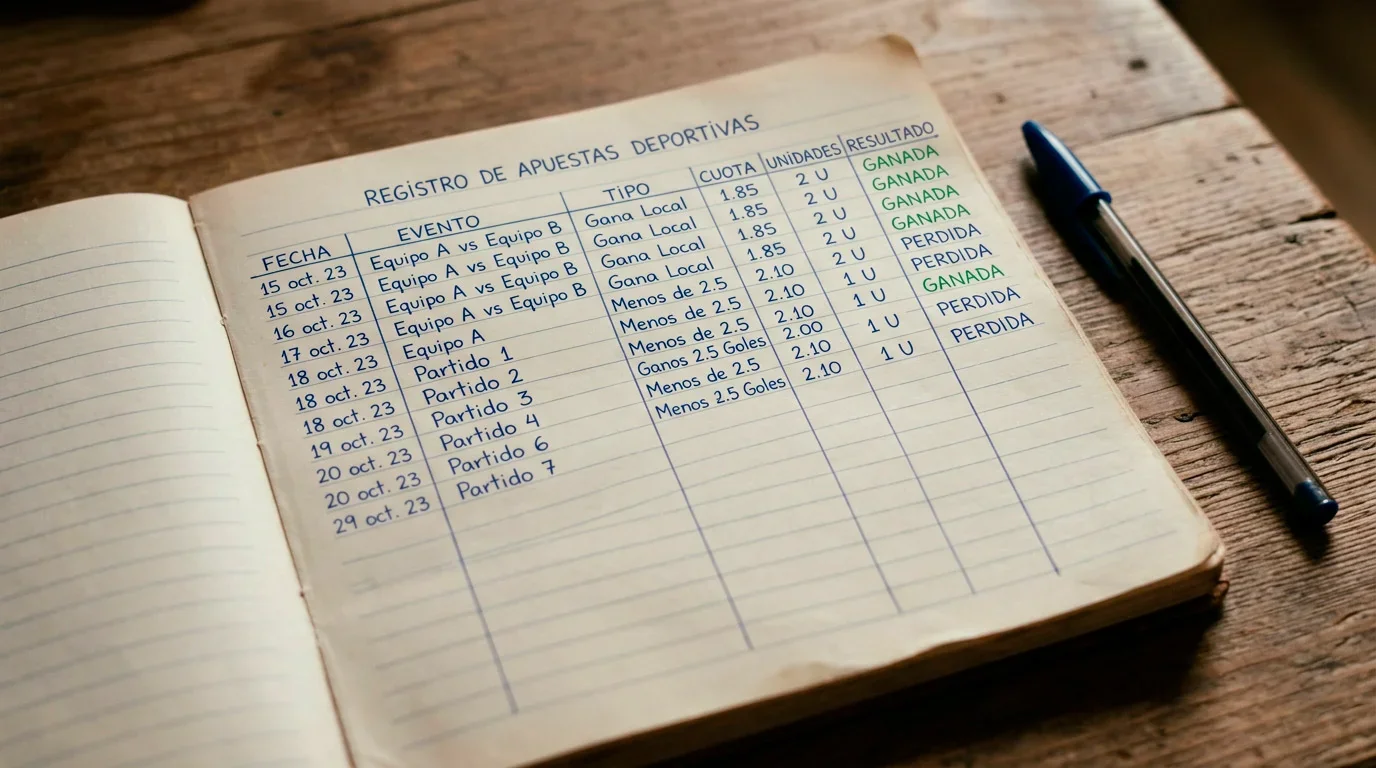 REGISTRO DE APUESTAS DEPORTIVAS
FECHA EVENTO TIPO CUOTA UNIDADES RESULTADO
15 oct. 23 Equipo A vs Equipo B Gana Local 1.85 2 U GANADA
15 oct. 23 Equipo A vs Equipo B Gana Local 1.85 2 U GANADA
16 oct. 23 Equipo A vs Equipo B Gana Local 1.85 2 U GANADA
17 oct. 23 Equipo A vs Equipo B Gana Local 1.85 2 U GANADA
18 oct. 23 Equipo A Menos de 2.5 2.10 2 U PERDIDA
18 oct. 23 Partido 1 Menos de 2.5 2.10 1 U PERDIDA
18 oct. 23 Partido 2 Menos de 2.5 2.10 1 U GANADA
19 oct. 23 Partido 3 Ganos 2.5 Goles 2.00 1 U PERDIDA
20 oct. 23 Partido 4 Menos de 2.5 2.10 1 U PERDIDA
20 oct. 23 Partido 6 Menos 2.5 Goles 2.10
29 oct. 23 Partido 7